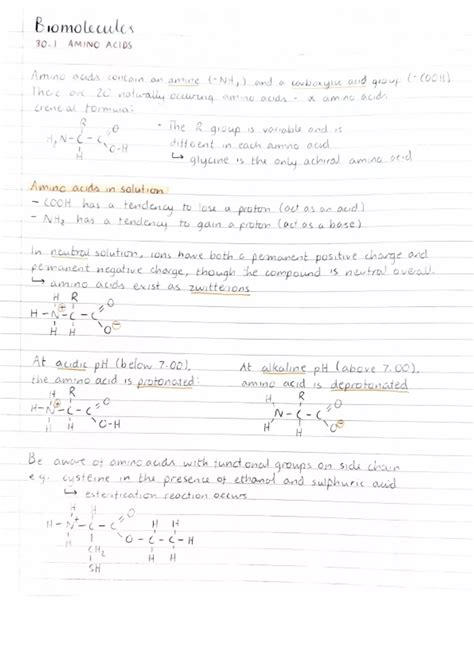 Biomolecules
30.1 AMINO ACIDS
Amino acids contain an amine (-NH2) and a carboxylic acid group (-COOH)
There are 20 naturally occuring amino acids - α amino acids
General formula:
R
H2N-C-C
O
O-H
H
- The R group is variable and is
different in each amino acid
↳ glycine is the only achiral amino acid
Amino acids in solution
- COOH has a tendency to lose a proton (act as an acid)
- NH2 has a tendency to gain a proton (act as a base)
In neutral solution, ions have both a permanent positive charge and
permanent negative charge, though the compound is neutral overall.
↳ amino acids exist as zwitterions
H R
H-N-C-C
O
O
H H
At acidic pH (below 7.00),
the amino acid is protonated:
H R
H-N-C-C
O
O-H
H H
At alkaline pH (above 7.00),
amino acid is deprotonated
H R
N-C-C
O
O
H H
Be aware of amino acids with functional groups on side chain
e.g. cysteine in the presence of ethanol and sulphuric acid
↳ esterification reaction occurs
H H
H-N+-C-C
O
H H
O-C-C-H
H CH2 H H
SH